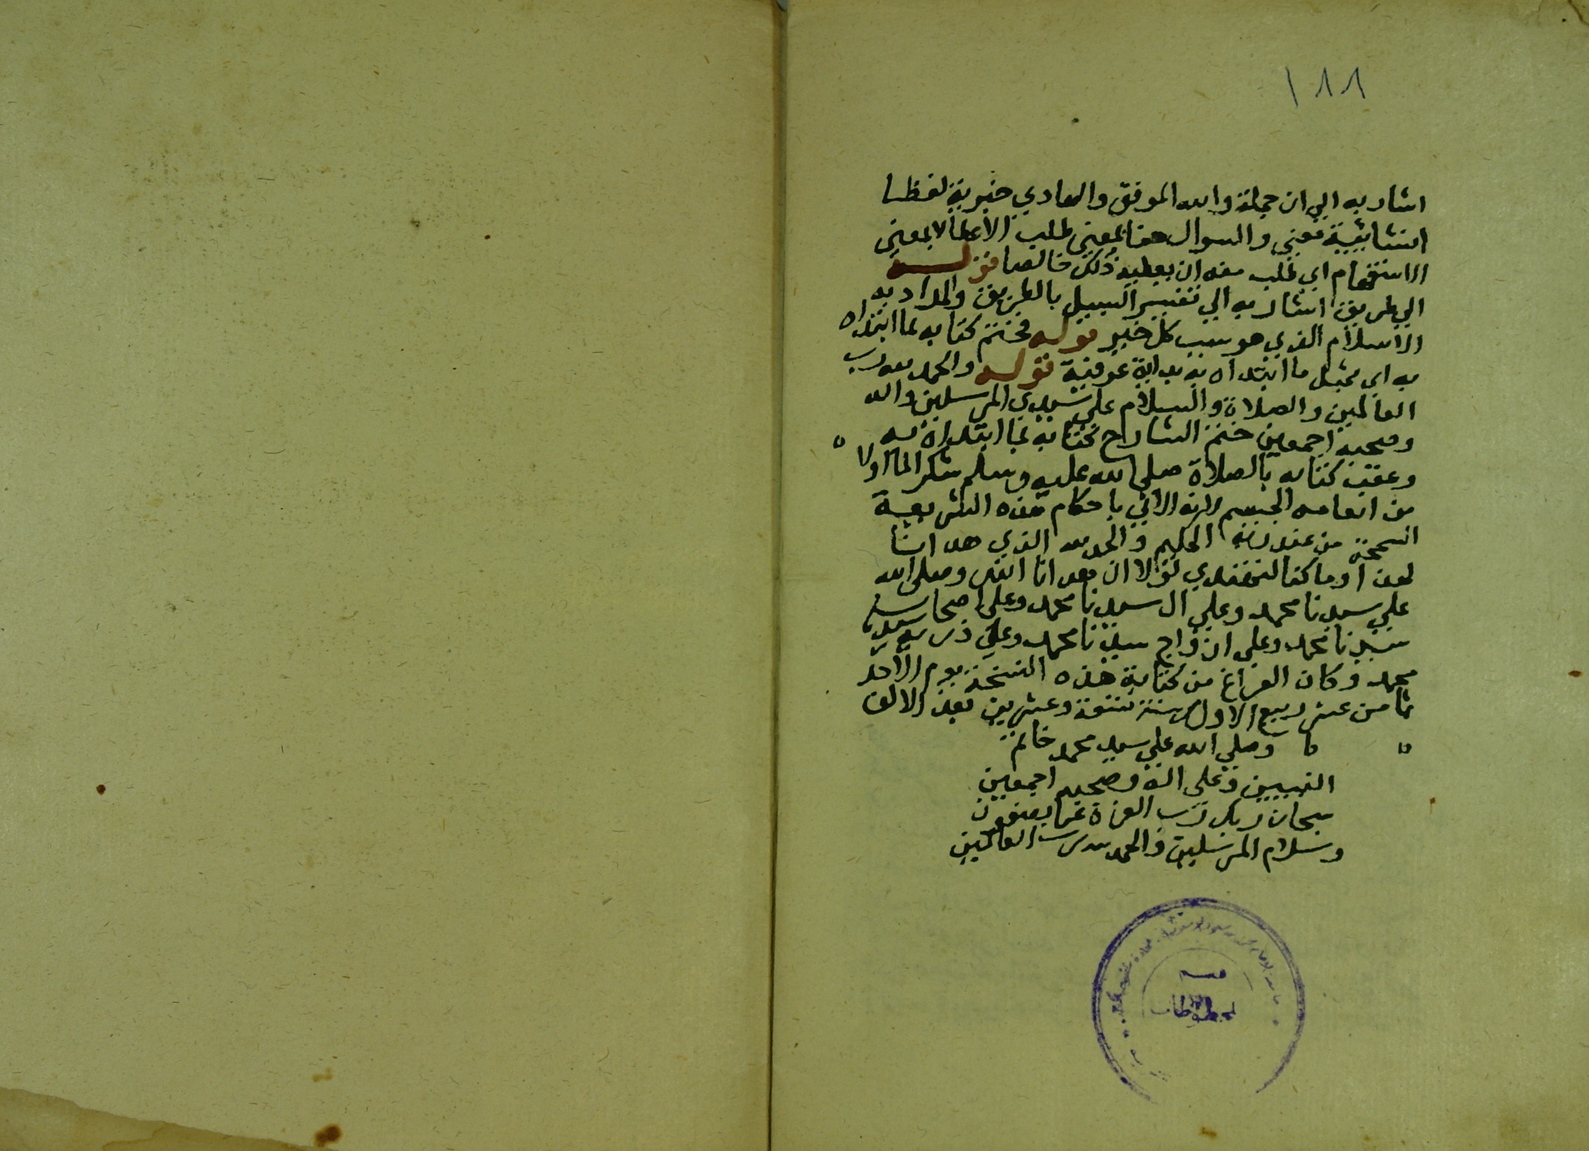 ١٨٨
اشار به الي ان جملة والله الموفق والهادي خبرية لفظا
انشائية معني والسوال هنا بمعني طلب الاعطا لا بمعني
الاستفهام اي طلب منه ان يعطيه ذلك خالصا قوله
الي طريق اشار به الي تفسير السبيل بالطريق والمراد به
الاسلام الذي هو سبب كل خير قوله فختم كتابه بما ابتداه
به اي بمثل ما ابتداه به بداية عرفية قوله والحمد لله رب
العالمين والصلاة والسلام علي سيدي المرسلين واله
وصحبه اجمعين ختم الشارح كتابه بما ابتداه به
وعقب كتابه بالصلاة صلي الله عليه وسلم شكرا لما اولا
من انعامه الجسيم لانه الاتي باحكام هذه الشريعة
السمحة من عند ربه الحليم والحمد لله الذي هدانا
لهذا وما كنا لنهتدي لولا ان هدانا الله وصلي الله
علي سيدنا محمد وعلي ال سيدنا محمد وعلي اصحاب
سيدنا محمد وعلي ازواج سيدنا محمد وعلي ذرية سيدنا
محمد وكان الفراغ من كتابة هذه النسخة يوم الاحد
ثامن عشر ربيع الاول سنة وعشرين بعد الالف
وصلي الله علي سيد محمد خاتم
النبيين وعلي اله وصحبه اجمعين
سبحان ربك رب العزة عما يصفون
وسلام المرسلين والحمد لله رب العالمين
قسم
المخطوطات